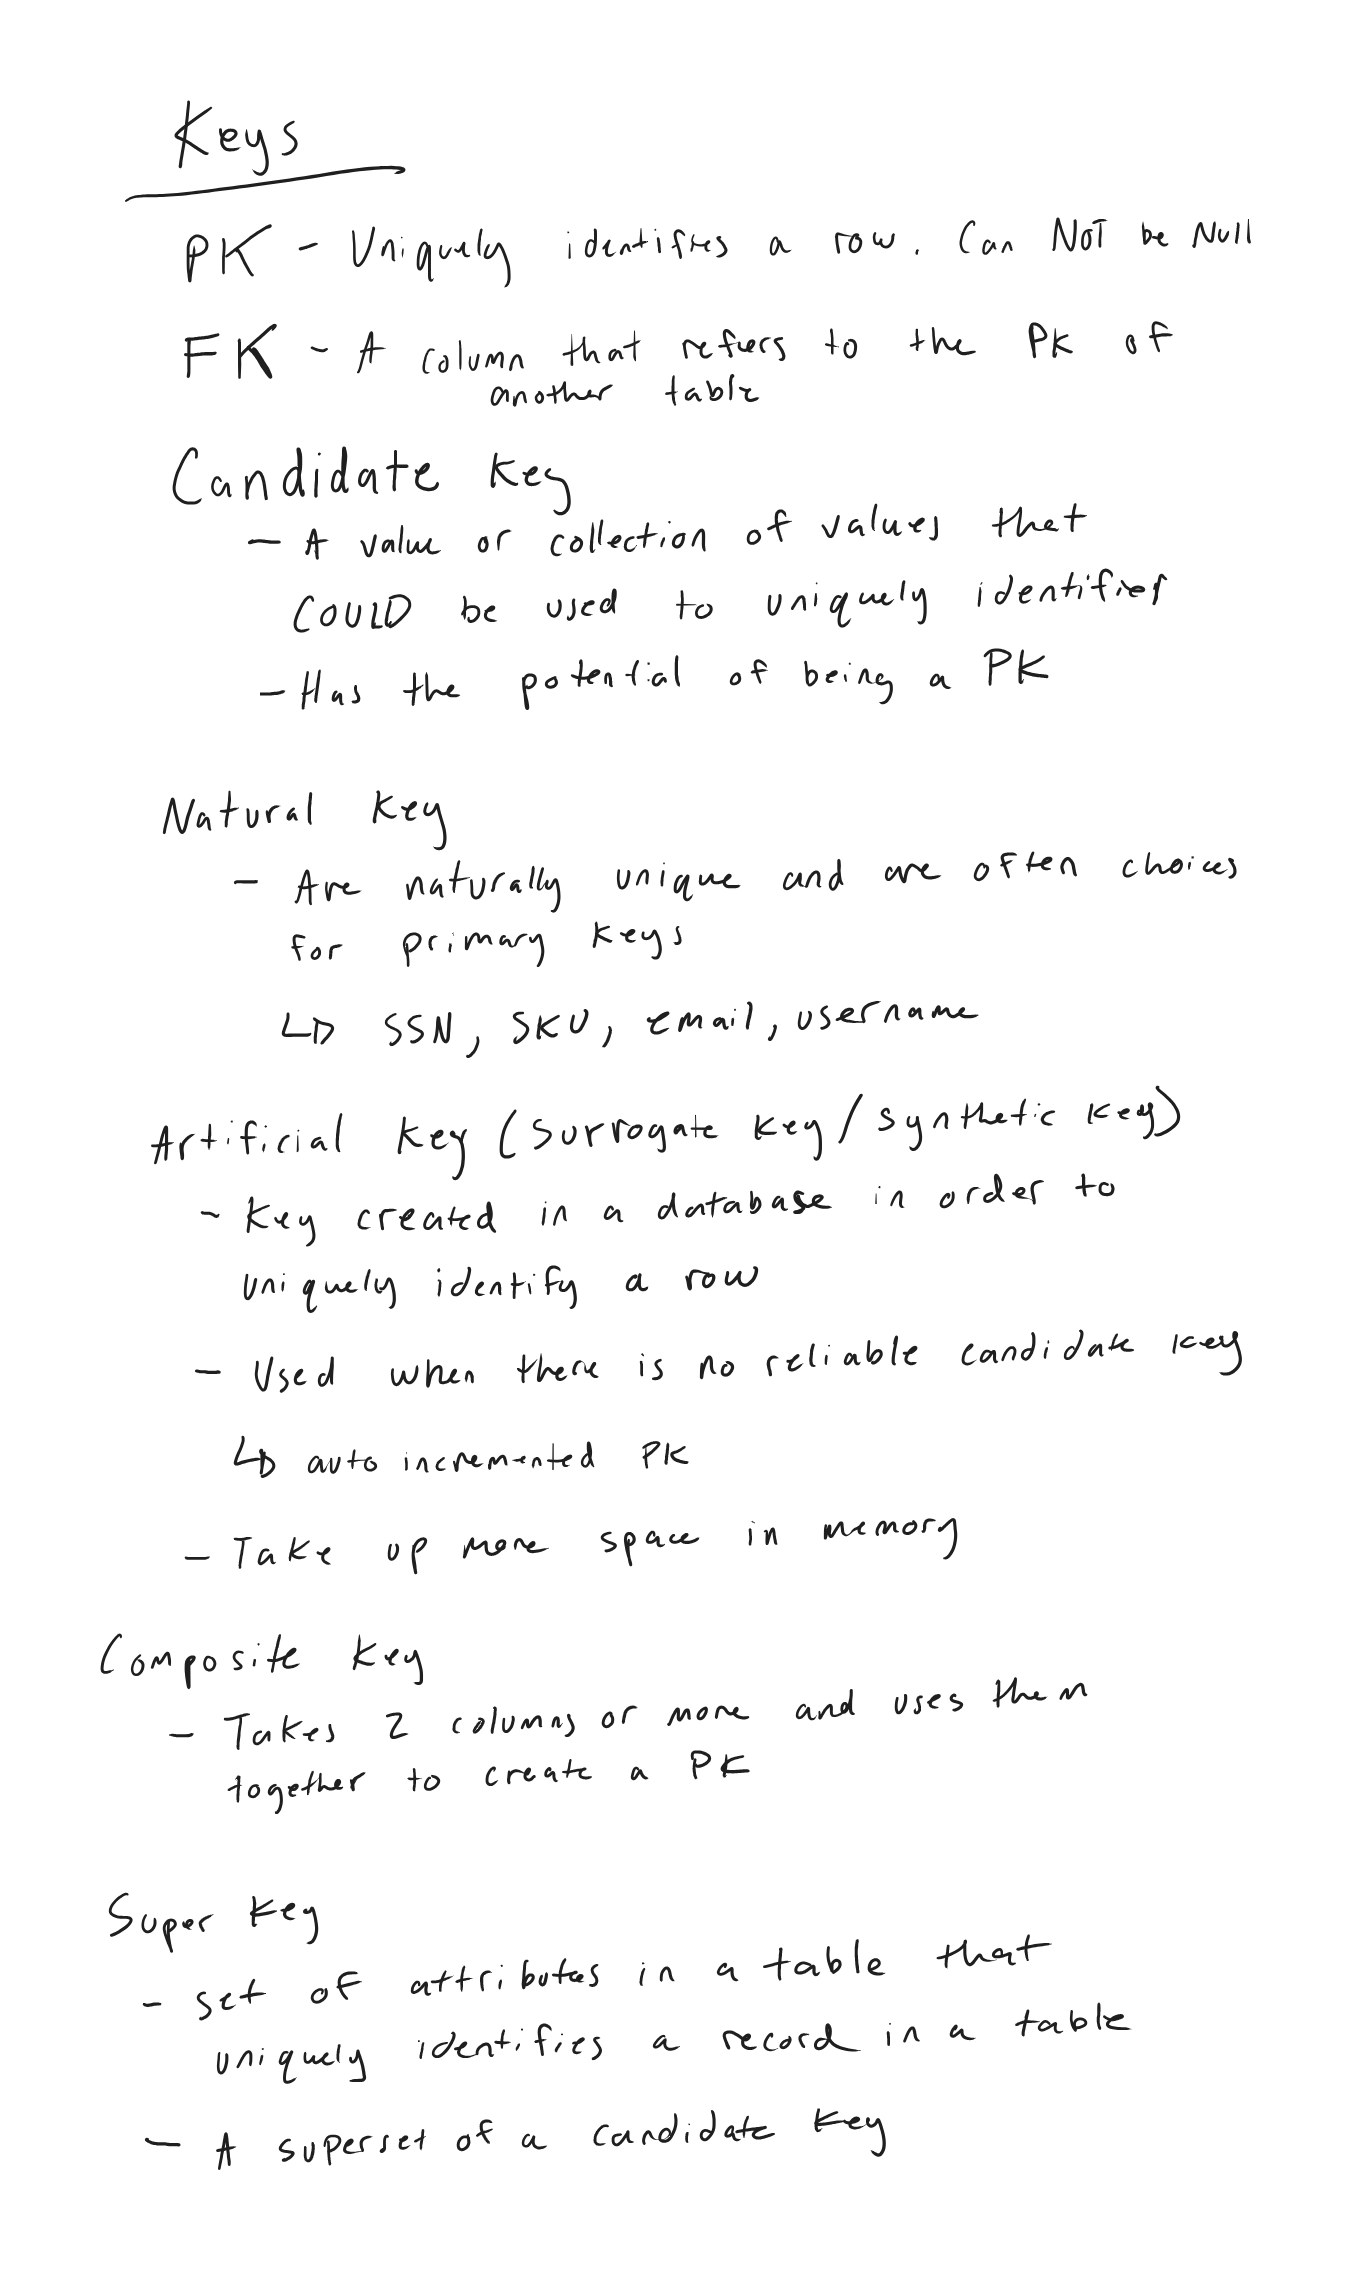 Keys
PK - Uniquely identifies a row. Can NOT be Null
FK - A column that refers to the PK of
another table
Candidate Key
- A value or collection of values that
COULD be used to uniquely identifier
- Has the potential of being a PK
Natural Key
- Are naturally unique and are often choices
for primary keys
↳ SSN, SKU, email, username
Artificial Key (Surrogate Key / Synthetic Key)
- Key created in a database in order to
uniquely identify a row
- Used when there is no reliable candidate key
↳ auto incremented PK
- Take up more space in memory
Composite Key
- Takes 2 columns or more and uses them
together to create a PK
Super Key
- set of attributes in a table that
uniquely identifies a record in a table
- A superset of a candidate key